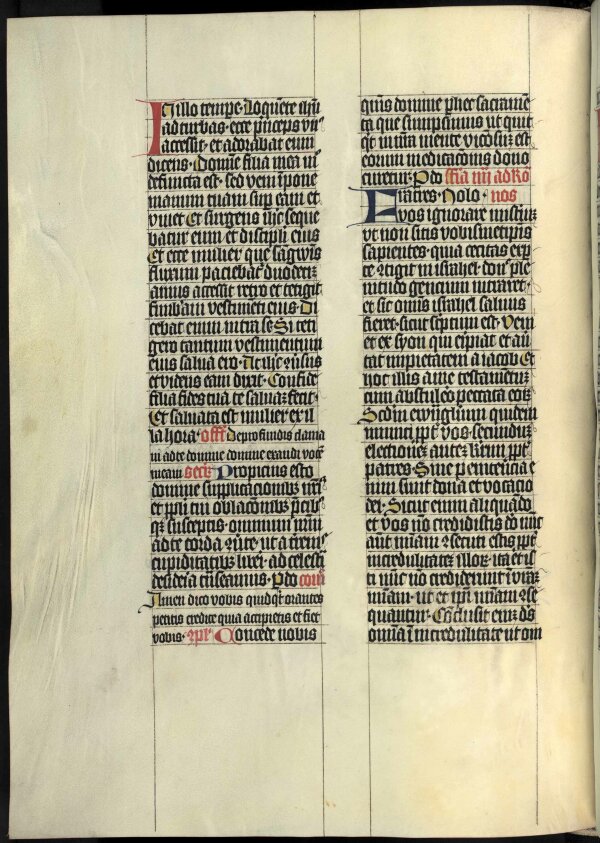 In illo tempore. Loquente ihu
ad turbas. ecce princeps vn9
accessit. et adorabat eum
dicens. Domine filia mea m
defuncta est. sed veni ipone
manum tuam sup eam et
viuet Et surgens ihc seque
batur eum et discipli eius
Et ecce mulier que sagwis
fluxum paciebat duodecim
annis accessit retro et tetigit
fimbriam vestimeti eius. Di
cebat enim intra se Si teti
gero tantum vestimentum
eius salua ero. At ihc conuersus
et videns eam dixit. Confide
filia fides tua te saluam fecit.
Et saluata est mulier ex il
la hora. off De profundis clama
ui ad te domine domine exaudi voce
meam secr Propicius esto
domine supplicacionibus nris
et ppli tui oblacionibus precibus
que susceptis. omnium nrm
ad te corda conuerte ut a terenis
cupiditatibus liberi. ad celestia
desideria transeamus. P do com
Amen dico vobis quidquid orantes
petitis credite quia accipietis et fiet
vobis. Concede nobis
quis domine p hec sacrame
ta que sumpsimus ut quit
quid in nra mente viciosum est
eorum meditacionis dono
curetur. P do fria iiij ad Ro
Fratres. Nolo nos
vos ignorare misterium
vt non sitis vobis metipsis
sapientes. quia cecitas exp
te contigit in israhel. donec ple
nitudo gencium intraret.
et sic omnis israhel saluus
fieret. sicut scptum est. Veni
et ex syon qui eripiat et auer
tat impietatem a iacob Et
hoc illis a me testamentum
cum abstulero peccata eorum
Scdm ewnglium quidem
inimici ppt vos. secundum
electionem autem karissimi ppt
patres. Sine penitencia e
nim sunt dona et vocacio
dei. Sicut enim aliquando
et vos no credidistis deo nunc
autem miam consecuti estis ppt
incredulitatem illorum. ita et is
ti nunc no crediderunt in vram
miam. ut et ipi miam conse
quantur. Conclusit enim ds
omia i incredulitate ut om